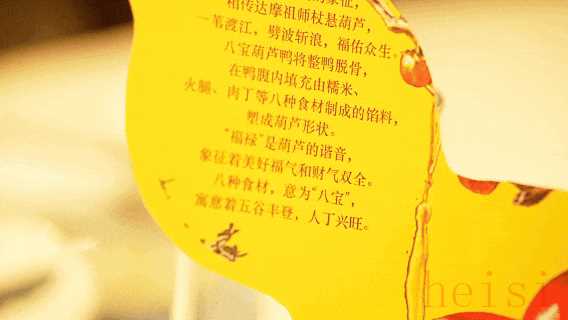 相传达摩祖师杖悬葫芦，
一苇渡江，劈波斩浪，福佑众生。
八宝葫芦鸭将整鸭脱骨，
在鸭腹内填充由糯米、
火腿、肉丁等八种食材制成的馅料，
塑成葫芦形状。
“福禄”是葫芦的谐音，
象征着美好福气和财气双全。
八种食材，意为“八宝”，
寓意着五谷丰登，人丁兴旺。
heisi